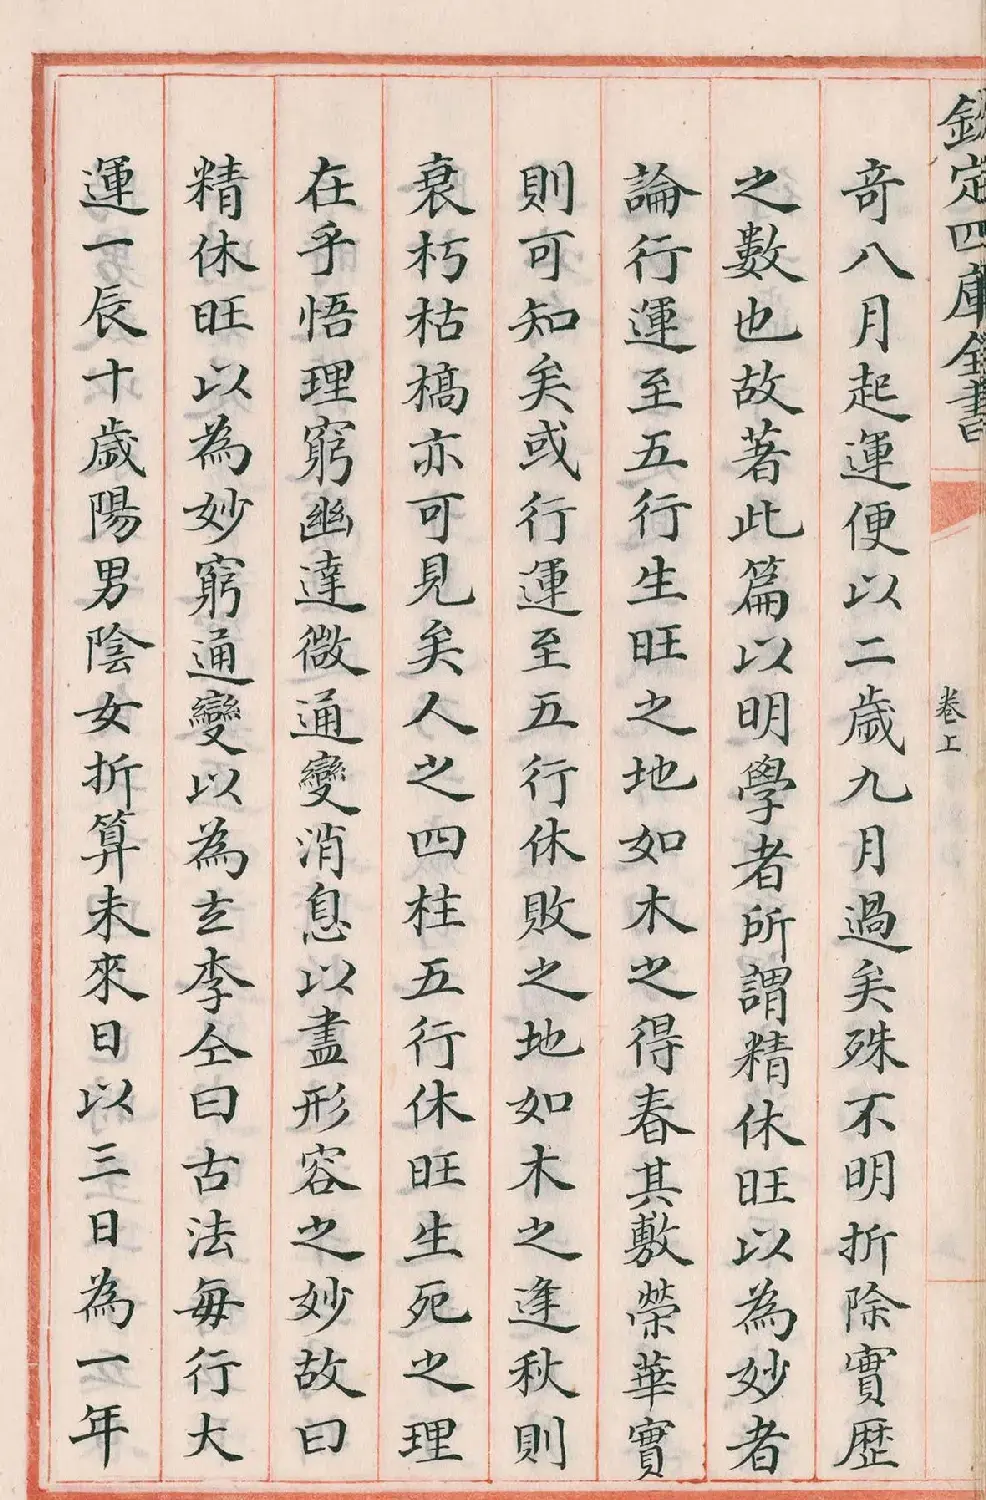 欽定四庫全書
卷上
竒八月起運便以二歲九月過矣殊不明折除實歴
之數也故著此篇以明學者所謂精休旺以為妙者
論行運至五行生旺之地如木之得春其敷榮華實
則可知矣或行運至五行休敗之地如木之逢秋則
衰朽枯槁亦可見矣人之四柱五行休旺生死之理
在乎悟理窮幽達微通變消息以盡形容之妙故曰
精休旺以為妙窮通變以為玄李仝曰古法每行大
運一辰十歲陽男陰女折算未來日以三日為一年